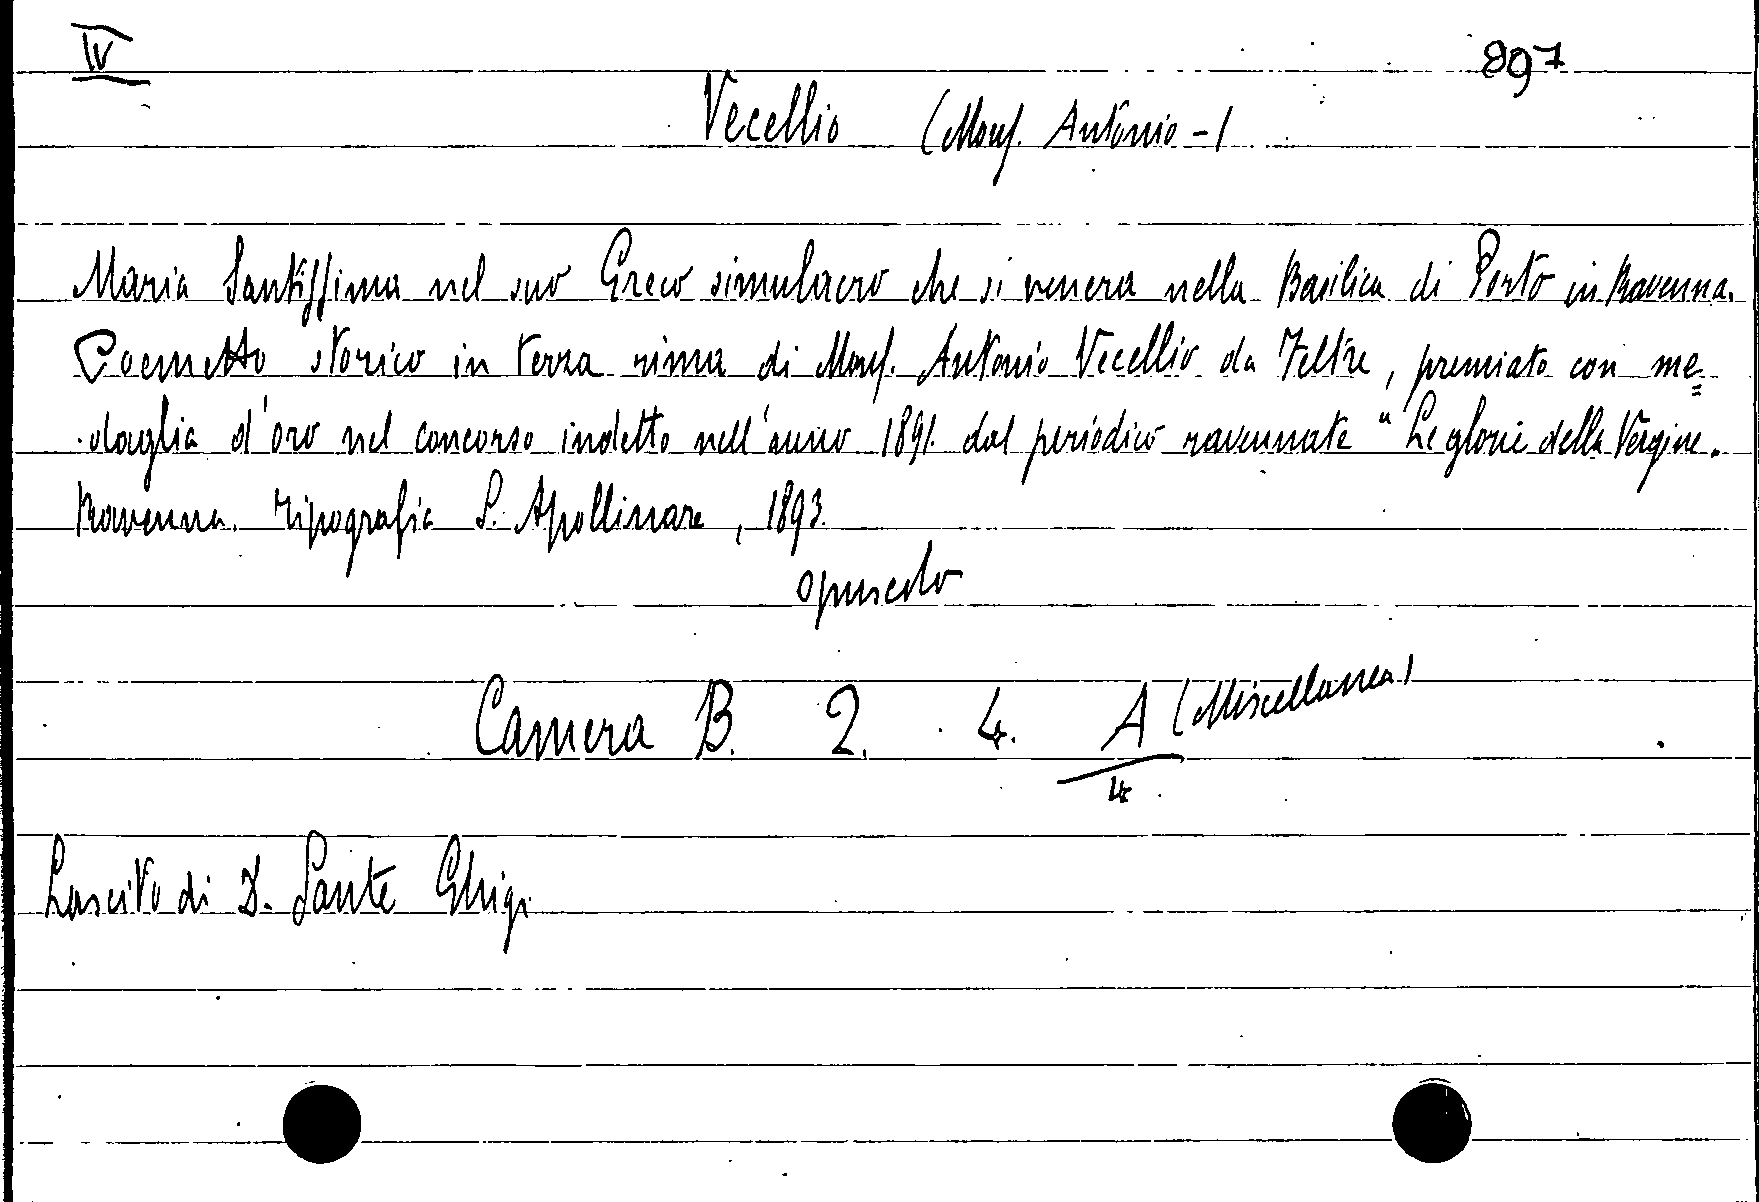 IV
897
Vecellio (Mons. Antonio-)
Maria Santissima nel suo Greco simulacro che si venera nella Basilica di Porto in Ravenna.
Poemetto storico in terza rima di Mons. Antonio Vecellio da Feltre, premiato con me=
daglia d'oro nel concorso indetto nell'anno 1891. dal periodico ravennate "Le glorie della Vergine.
Ravenna. Tipografia S. Apollinare, 1893.
opuscolo
Camera B. 2. 4. A (Miscellanea)
4
Lascito di D. Sante Ghigi